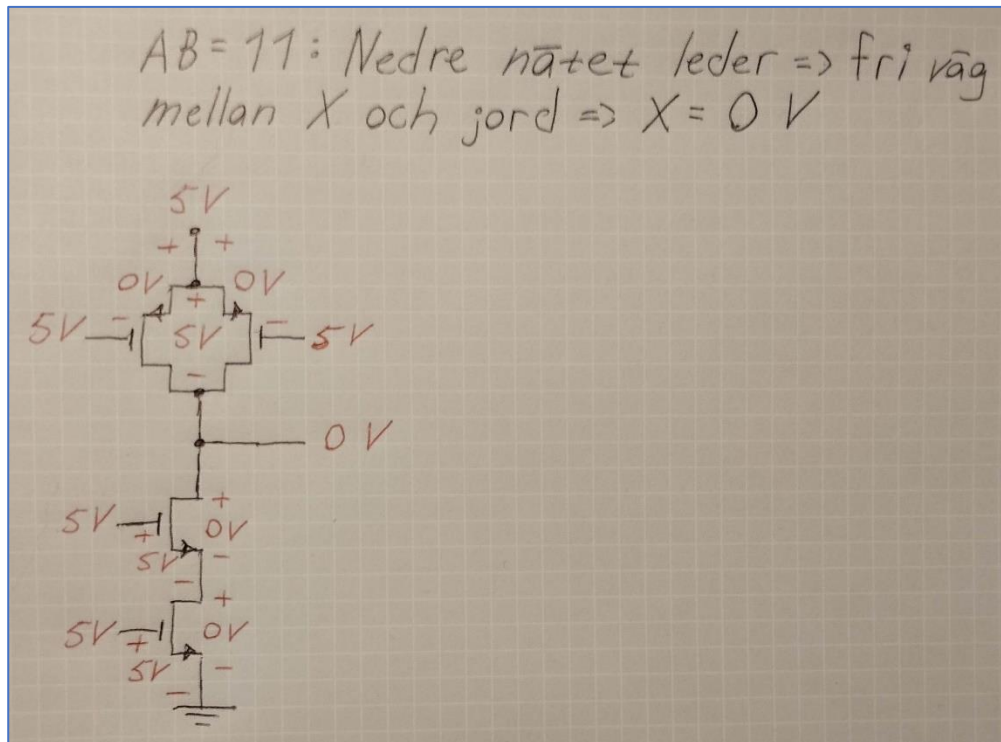 AB = 11: Nedre nätet leder => fri väg
mellan X och jord => X = 0 V
5V
+ +
0V 0V
+
- -
5V 5V 5V
-
0 V
+
5V 0V
+
5V -
-
+
5V 0V
+
5V -
-